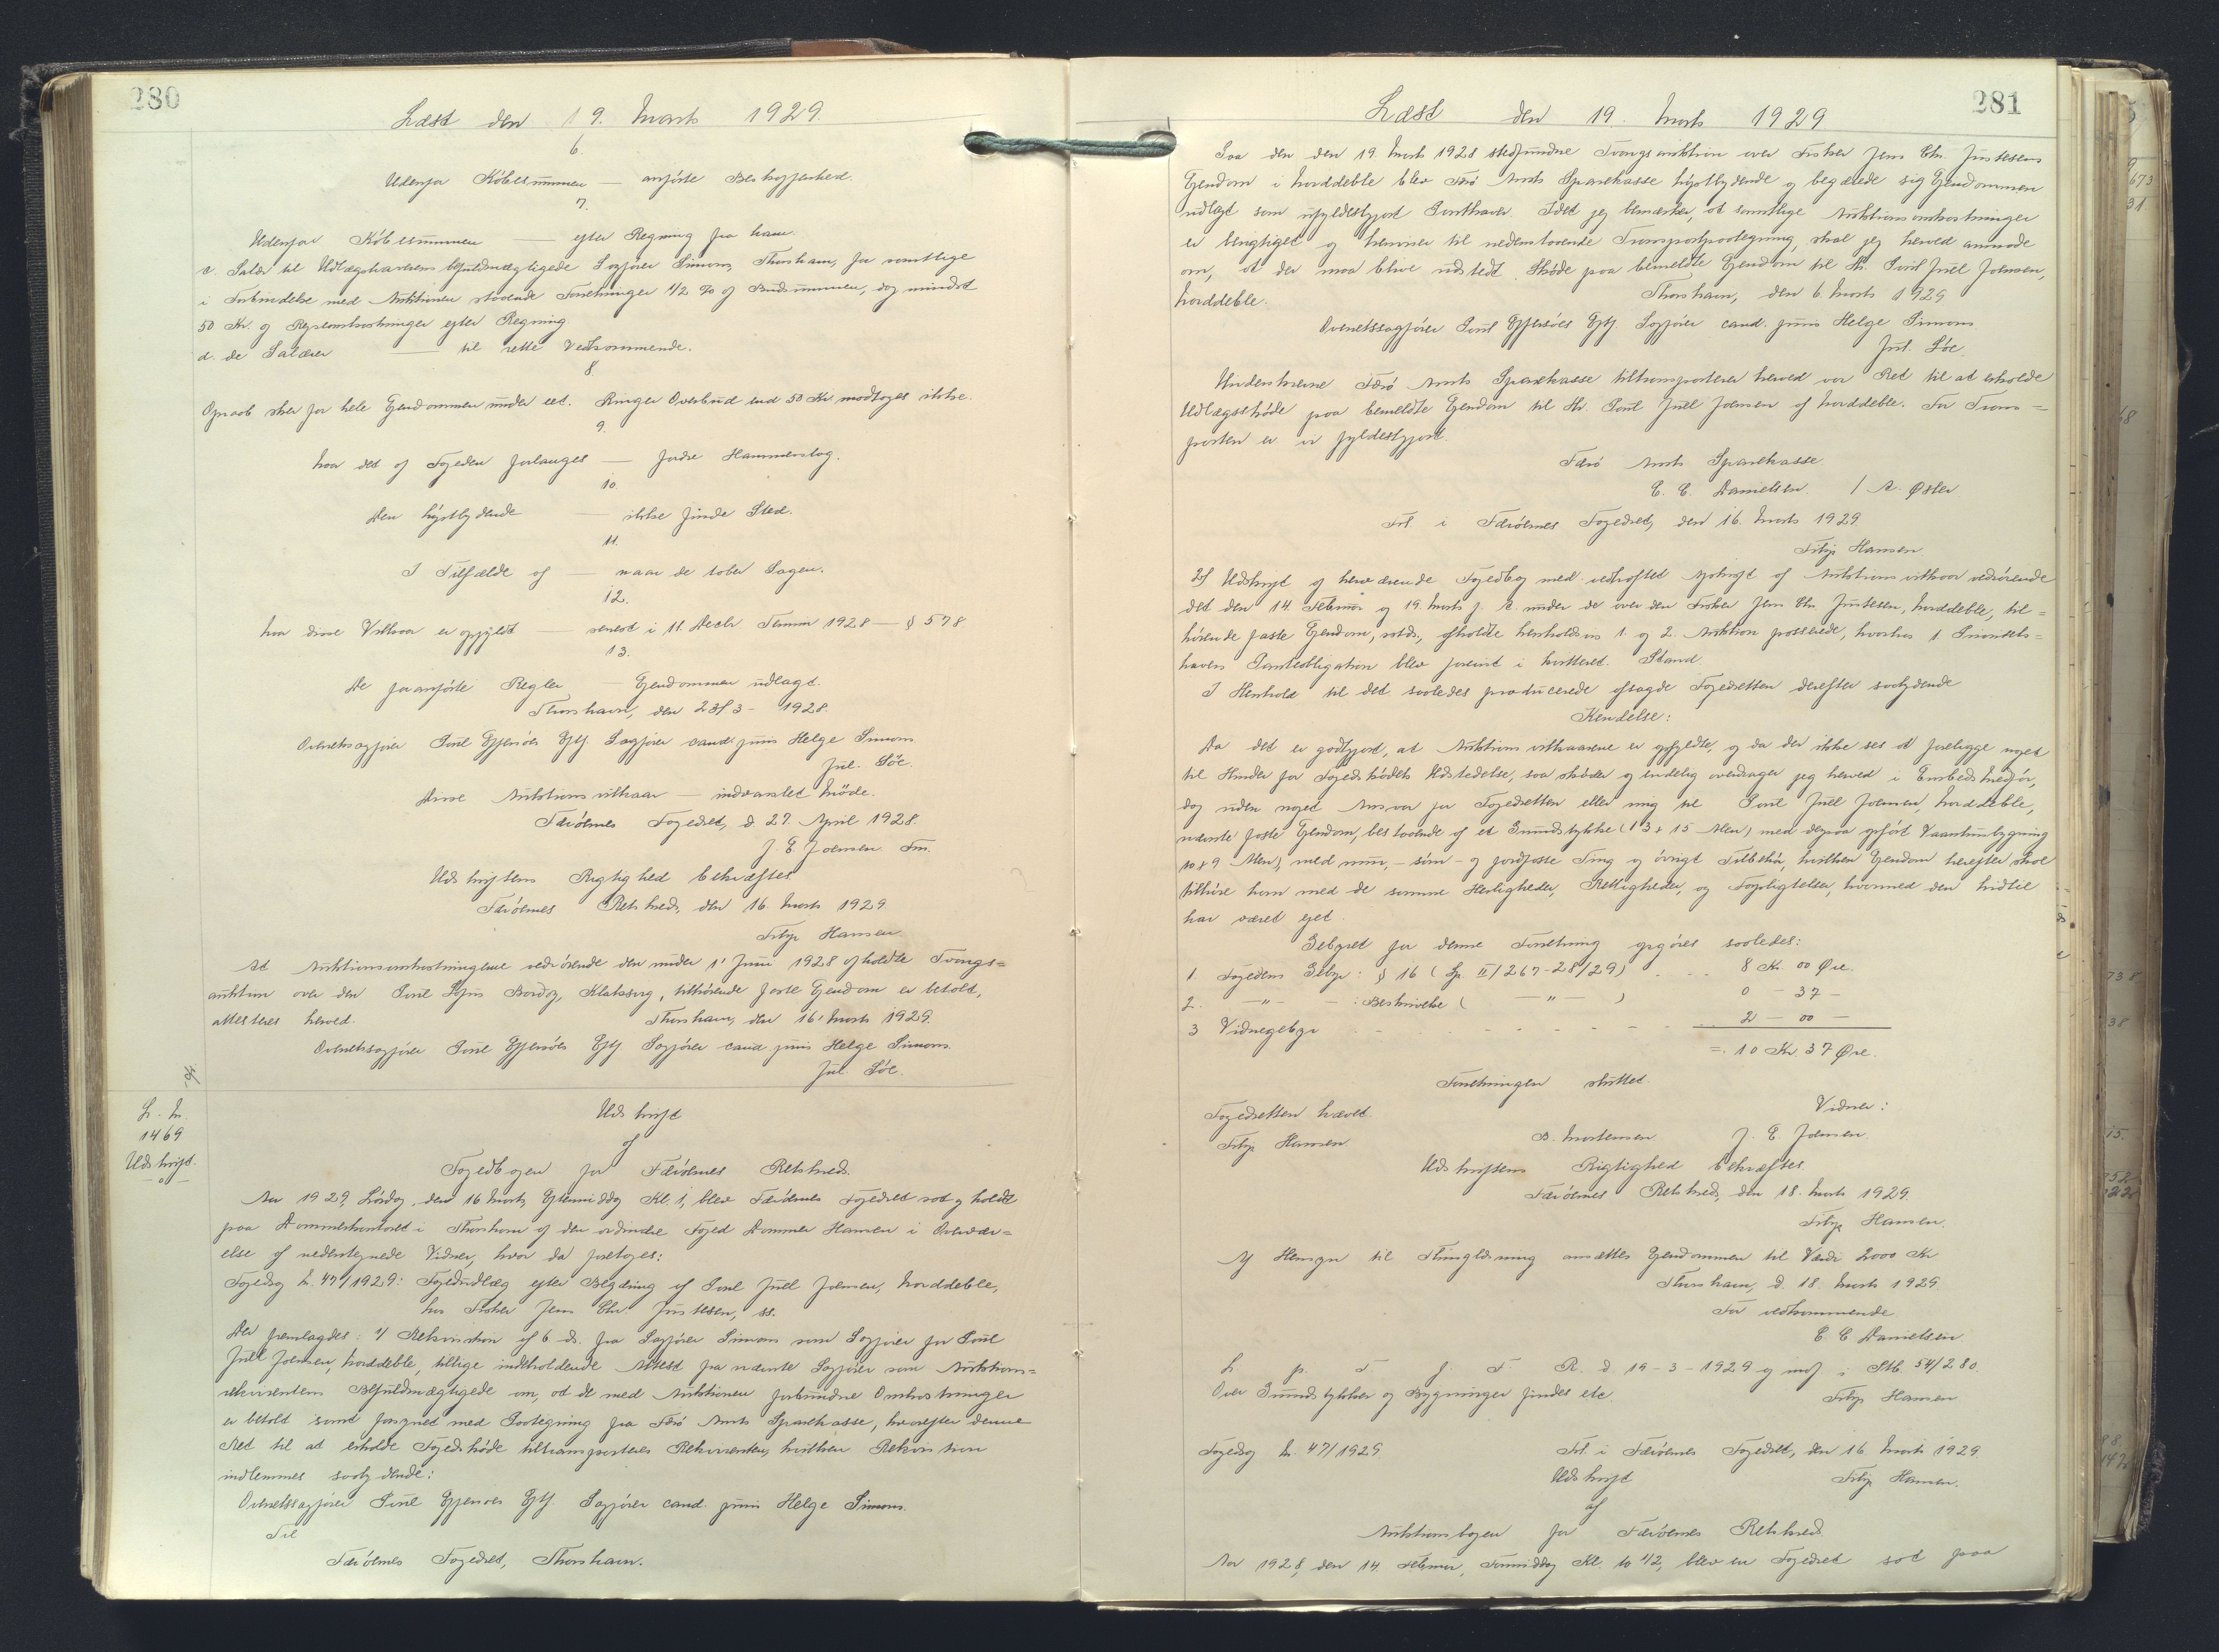 280
Læst den 19. Marts 1929.
6.
Udenfor Købesummen — anførte Beskaffenhed.
7.
Udenfor Købesummen — efter Regning fra ham.
c. Salær til Udlægshaverens befuldmægtigede Sagfører Simons, Thorshavn, for samtlige
i Forbindelse med Auktionen staaende Forretninger 1/2 % af Budsummen, dog mindst
50 Kr. og Rejseomkostninger efter Regning
d. de Salærer — til rette Vedkommende.
8.
Opraab sker for hele Ejendommen under eet. Ringer Overbud end 50 Kr. modtages ikke.
9.
Naar det af Fogeden forlanges — fjerde Hammerslag.
10.
Den højstbydende — ikke finde Sted.
11.
I Tilfælde af — naar de taber Sagen.
12.
Naar disse Vilkaar er opfyldt — senest i 11. Decbr Termin 1928 — § 578
13.
De foranførte Regler — Ejendommen udlagt.
Thorshavn, den 23/3 - 1928.
Overretssagfører Poul Effersøes Eftf. Sagfører cand. juris Helge Simons
Jul. Søe.
Disse Auktionsvilkaar — indvarslet Møde.
Færøernes Fogedret, d. 27 April 1928.
J. E. Joensen Fm.
Udskriftens Rigtighed bekræftes
Færøernes Retskreds, den 16. Marts 1929
Filip Hansen.
At Auktionsomkostningerne vedrørende den under 1' Juni 1928 afholdte Tvangs=
auktion over den Poul Bordoy, Klaksvig, tilhørende faste Ejendom er betalt,
attesteres herved.
Thorshavn, den 16' Marts 1929.
Overretssagfører Poul Effersøes Eftf Sagfører cand. juris Helge Simons.
Jul. Søe.
L. N.
1469
Udskrift.
Udskrift
af
Fogedbogen for Færøernes Retskreds.
Aar 1929, Lørdag, den 16 Marts, Eftermiddag Kl. 1, blev Færøernes Fogedret sat og holdt
paa Dommerkontoret i Thorshavn af den ordinære Foged Dommer Hansen i Overvær=
else af nedentegnede Vidner, hvor da foretoges:
Fogedsag Nr. 47/1929: Fogedudlæg efter Begæring af Poul Juel Joensen, Norddeble,
hos Fisker Jens Chr. Justesen, ss.
Der fremlagdes: 1/ Rekvisition af 6 ds. fra Sagfører Simons som Sagfører for Poul
Juel Joensen, Norddeble, tillige indeholdende Attest fra nævnte Sagfører som Auktions=
rekvirentens Befuldmægtigede om, at de med Auktionen forbundne Omkostninger
er betalt samt forsynet med Paategning fra Færø Amts Sparekasse, hvorefter denne
Ret til at erholde Fogedskøde tiltransporteres Rekvirenten, hvilken Rekvisition
indlemmes saalydende:
Overretssagfører Poul Effersøes Eftf. Sagfører cand. juris Helge Simons.
Til
Færøernes Fogedret, Thorshavn.
281
Læst den 19. Marts 1929
Paa den den 19. Marts 1928 stedfundne Tvangsauktion over Fisker Jens Chr. Justesens
Ejendom i Norddeble blev Færø Amts Sparekasse højstbydende og begærede sig Ejendommen
udlagt som ufyldestgjort Panthaver. Idet jeg bemærker, at samtlige Auktionsomkostninger
er berigtiget og henviser til nedenstaaende Transportpaategning, skal jeg herved anmode
om, at der maa blive udstedt Skøde paa bemeldte Ejendom til Hr. Poul Juel Joensen,
Norddeble.
Thorshavn, den 6. Marts 1929
Overretssagfører Poul Effersøes Eftf. Sagfører cand. juris Helge Simons
Jul. Søe.
Underskrevne Færø Amts Sparekasse tiltransporterer herved vor Ret til at erholde
Udlægsskøde paa bemeldte Ejendom til Hr. Poul Juel Joensen af Norddeble. For Trans=
porten er vi fyldestgjort.
Færø Amts Sparekasse
C. C. Danielsen. / A. Øster
Frl. i Færøernes Fogedret, den 16. Marts 1929.
Filip Hansen
2/ Udskrift af herværende Fogedbog med vedhæftet Afskrift af Auktionsvilkaar vedrørende
det den 14. Februar og 19. Marts f. A. under de over den Fisker Jens Chr. Justesen, Norddeble, til=
hørende faste Ejendom, sstds., afholdte henholdsvis 1. og 2. Auktion passerede, hvorhos 1 Pantobligation blev forevist i kvitteret Stand.
I Henhold til det saaledes producerede afsagde Fogedretten derefter saalydende
Kendelse:
Da det er godtgjort, at Auktionsvilkaarene er opfyldte, og da der ikke ses at foreligge noget
til Hinder for Fogedskødets Udstedelse, saa skøder og endelig overdrager jeg herved i Embeds Medfør,
dog uden noget Ansvar for Fogedretten eller mig til Poul Juel Joensen, Norddeble,
nævnte faste Ejendom, bestaaende af et Grundstykke (13 x 15 Alen) med derpaa opført Vaaningsbygning
10 x 9 Alen), med mur-, søm- og jordfaste Ting og øvrigt Tilbehør, hvilken Ejendom herefter skal
tilhøre ham med de samme Herligheder, Rettigheder, og Forpligtelser, hvormed den hidtil
har været ejet.
Gebyret for denne Forretning opgøres saaledes:
1 Fogedens Gebyr: § 16 (Sp. II/267-28/29) . . . 8 Kr. 00 Øre.
2. — " — — : Beskrivelse ( — " — ) 0 - 37 -
3 Vidnegebyr . . . . . 2 — 00 —
= 10 Kr. 37 Øre.
Forretningen sluttet.
Fogedretten hævet
Vidner:
Filip Hansen
D. Mortensen. J. E. Joensen
Udskriftens Rigtighed bekræftes.
Færøernes Retskreds, den 18. Marts 1929.
Filip Hansen.
Af Hensyn til Thinglæsning ansættes Ejendommen til Værdi 2000 Kr
Thorshavn, d. 18. Marts 1929
For vedkommende
C C Danielsen
L. p. F. f. F. R. d. 19-3-1929 og indf. i Skb. 54/280.
Over Grundstykker og Bygninger findes etc.
Filip Hansen
Fogedsag Nr. 47/1929.
Frl. i Færøernes Fogedret, den 16 Marts 1929.
Udskrift
Filip Hansen.
af
Auktionsbogen for Færøernes Retskreds
Aar 1928, den 14. Februar, Formiddag Kl. 10 1/2, blev en Fogedret sat paa